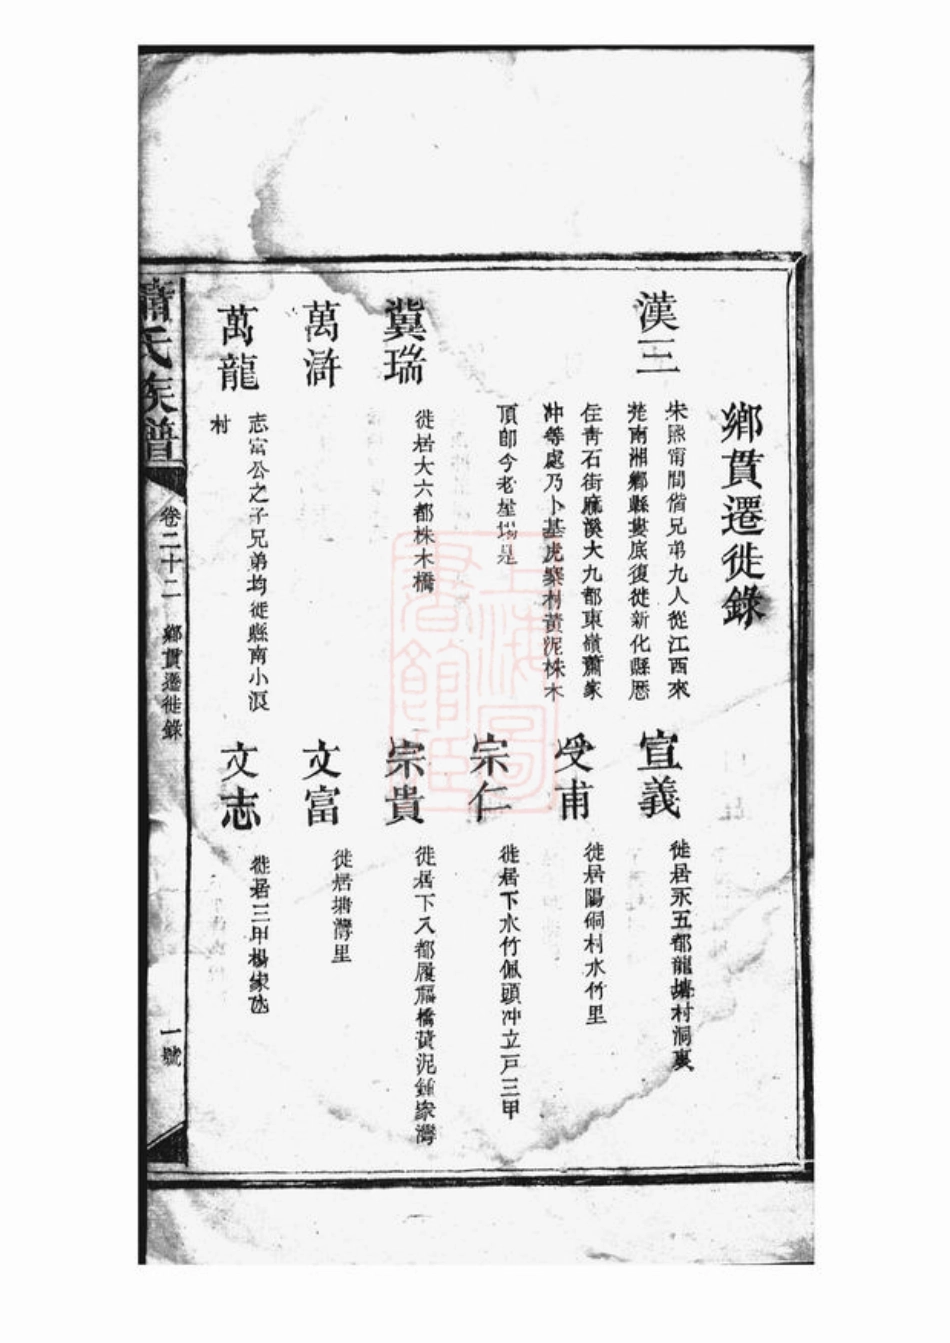 鄉貫遷徙錄
漢三
宋熙甯間偕兄弟九人從江西來
楚南湘鄉縣婁底復徙新化縣歷
住青石街麻溪大九都東嶺蕭家
冲等處乃卜基虎寨村黃泥株木
頂卽今老屋場是
宣義
徙居永五都龍塘村洞裏
受甫
徙居陽硐村水竹里
宗仁
徙居下水竹佩頭冲立戸三甲
冀瑞
徙居大六都株木橋
宗貴
徙居下八都履福橋黃泥鍾家灣
萬滸
文富
徙居塘灣里
萬龍
志富公之子兄弟均徙縣南小溟
村
文志
徙居三甲楊家氹
蕭氏族譜
卷二十二
鄉貫遷徙錄
一號
上海圖
書館藏